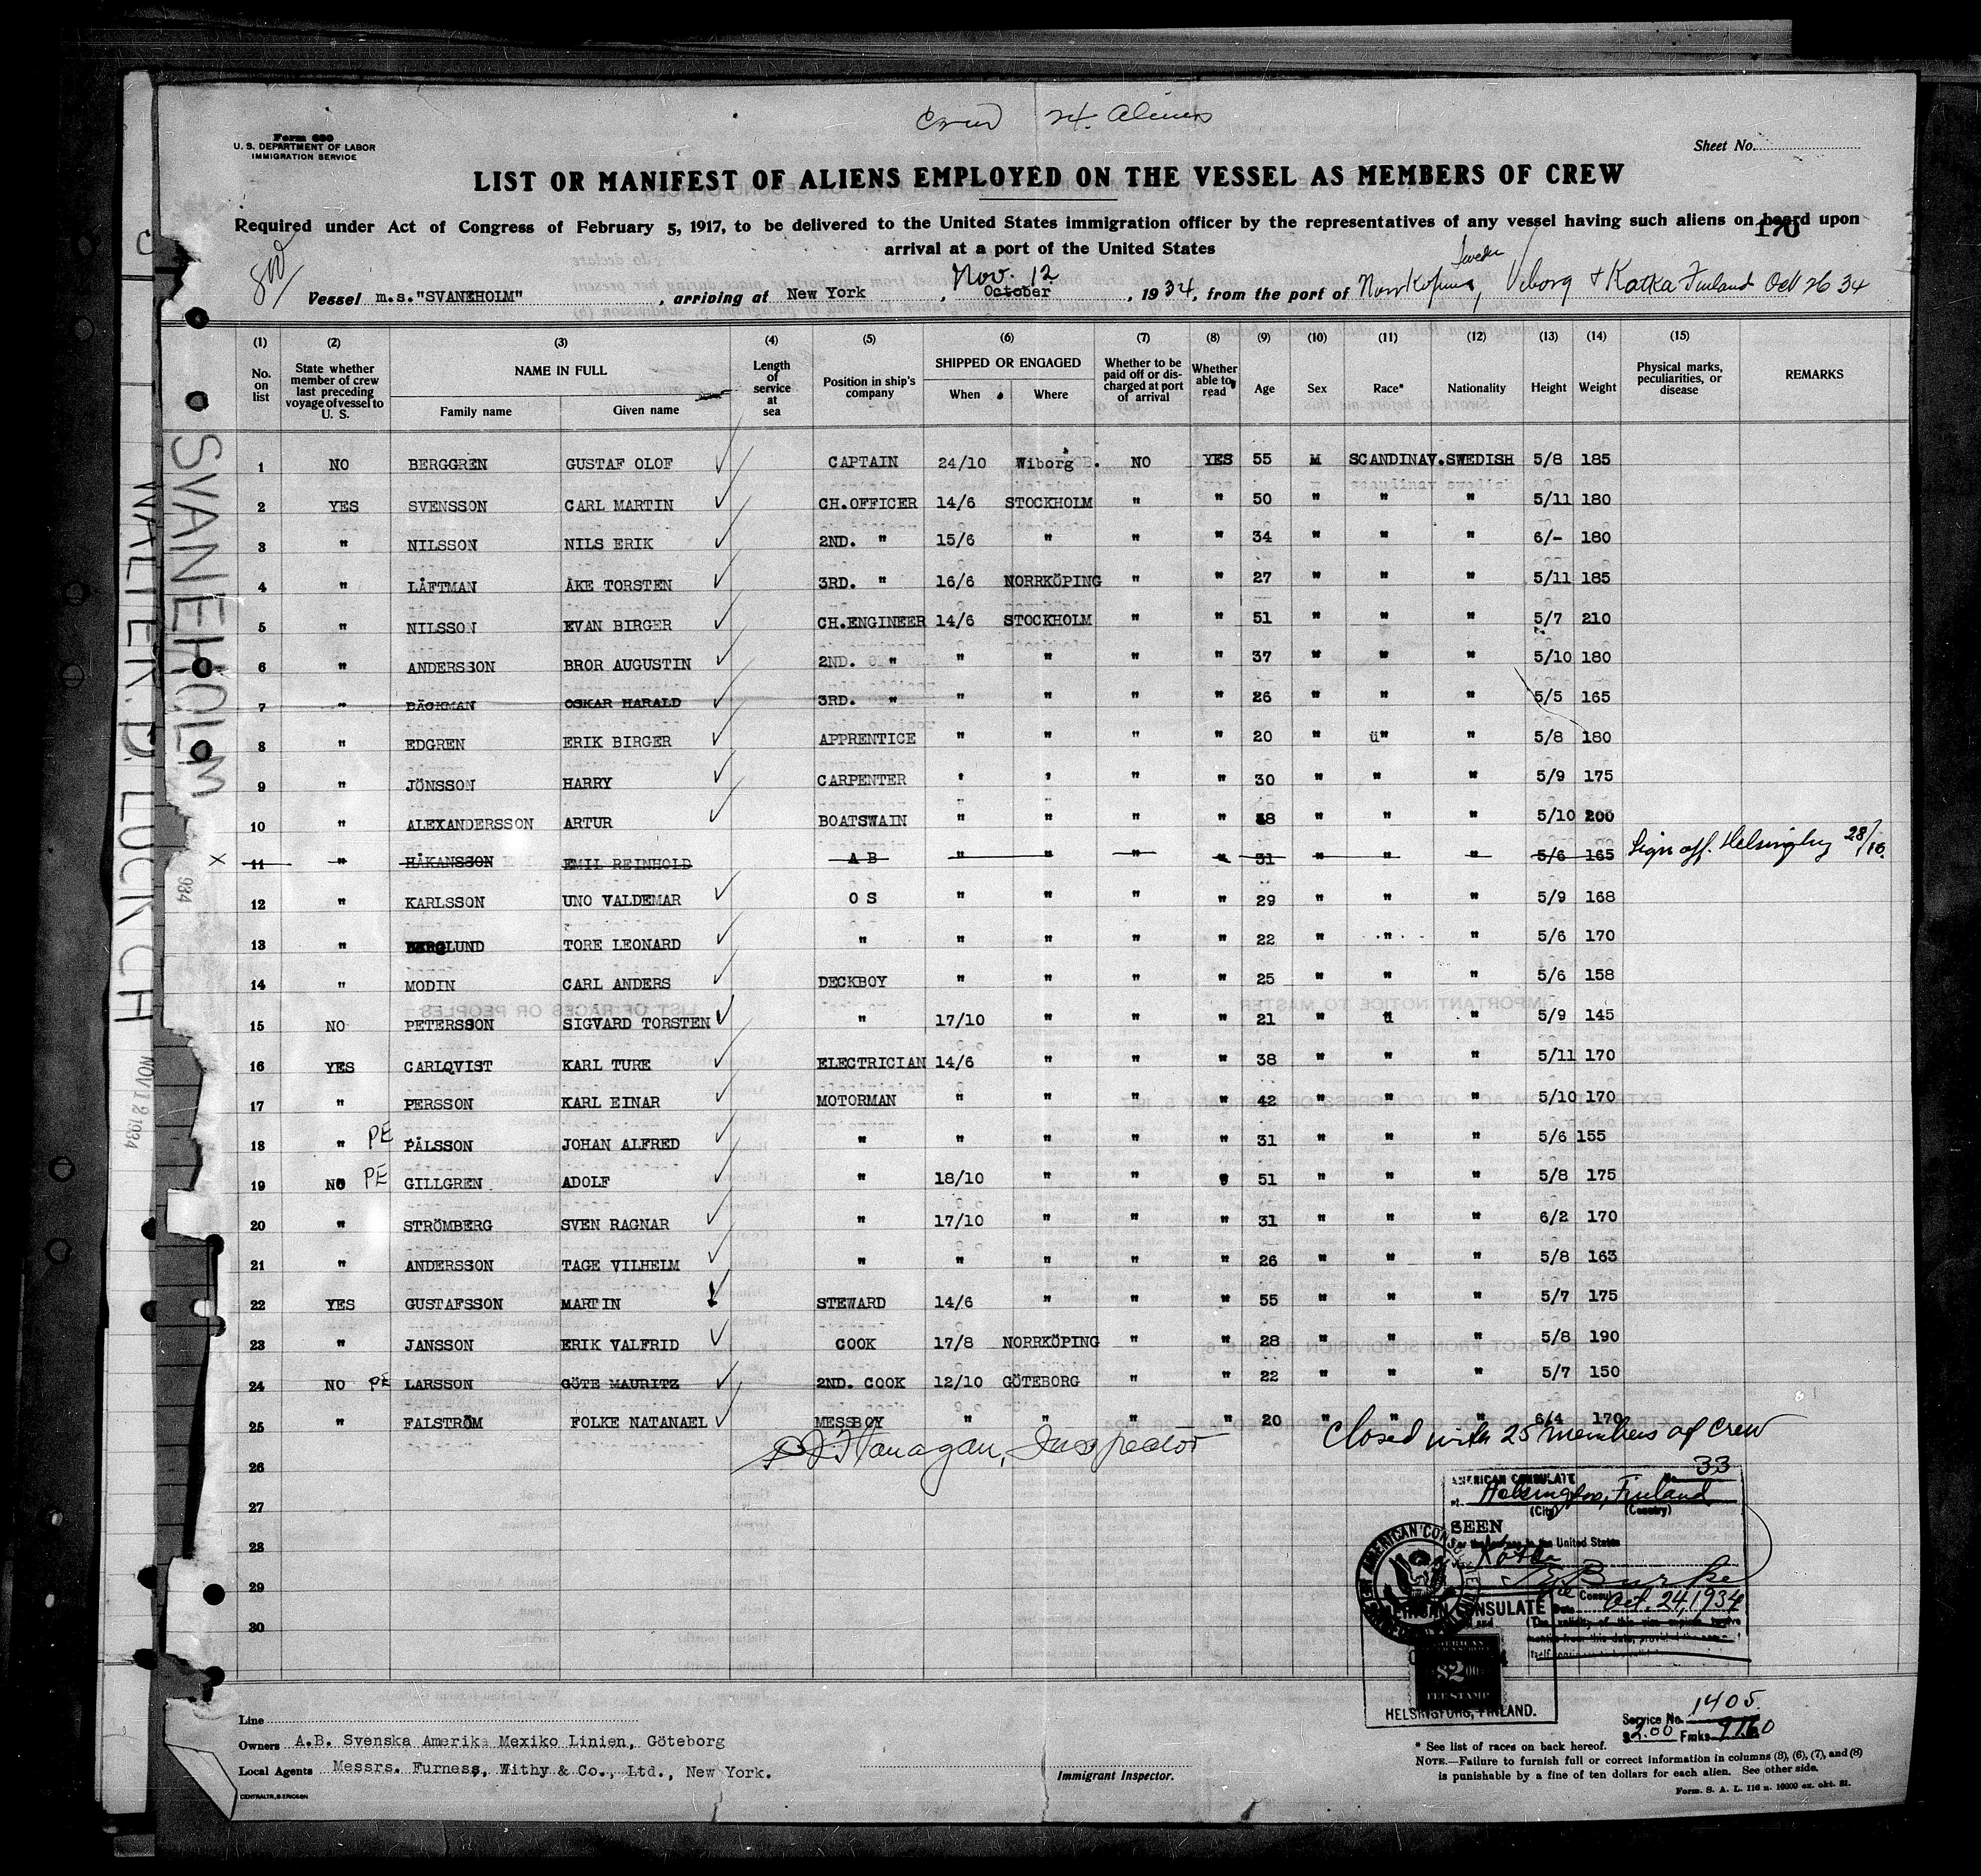 Crew 24 Aliens
Form 680
U. S. DEPARTMENT OF LABOR
IMMIGRATION SERVICE
Sheet No.
LIST OR MANIFEST OF ALIENS EMPLOYED ON THE VESSEL AS MEMBERS OF CREW
Required under Act of Congress of February 5, 1917, to be delivered to the United States immigration officer by the representatives of any vessel having such aliens on board upon
arrival at a port of the United States
170
Vessel m.s."SVANEHOLM", arriving at New York, October Nov. 12, 1934, from the port of Norrkoping, Sweden Viborg + Kotka Finland Oct 26 34
(1) (2) (3) (4) (5) (6) (7) (8) (9) (10) (11) (12) (13) (14) (15)
No. on list
State whether member of crew last preceding voyage of vessel to U. S.
NAME IN FULL
Family name
Given name
Length of service at sea
Position in ship's company
SHIPPED OR ENGAGED
When
Where
Whether to be paid off or discharged at port of arrival
Whether able to read
Age
Sex
Race*
Nationality
Height
Weight
Physical marks, peculiarities, or disease
REMARKS
1 NO BERGGREN GUSTAF OLOF CAPTAIN 24/10 Wiborg. NO YES 55 M SCANDINAV. SWEDISH 5/8 185
2 YES SVENSSON CARL MARTIN CH.OFFICER 14/6 STOCKHOLM " " 50 " " " 5/11 180
3 " NILSSON NILS ERIK 2ND. " 15/6 " " " 34 " " " 6/- 180
4 " LÅFTMAN ÅKE TORSTEN 3RD. " 16/6 NORRKÖPING " " 27 " " " 5/11 185
5 " NILSSON EVAN BIRGER CH.ENGINEER 14/6 STOCKHOLM " " 51 " " " 5/7 210
6 " ANDERSSON BROR AUGUSTIN 2ND. " " " " " 37 " " " 5/10 180
7 " BÄCKMAN OSKAR HARALD 3RD. " " " " " 26 " " " 5/5 165
8 " EDGREN ERIK BIRGER APPRENTICE " " " " 20 " ü" " 5/8 180
9 " JÖNSSON HARRY CARPENTER ' ' " " 30 " " " 5/9 175
10 " ALEXANDERSSON ARTUR BOATSWAIN " " " " 38 " " " 5/10 200
x 11 " HÅKANSSON EMIL REINHOLD A B " " " " 31 " " " 5/6 165 Sign off. Helsingborg 28/10.
12 " KARLSSON UNO VALDEMAR O S " " " " 29 " " " 5/9 168
13 " BERGLUND TORE LEONARD " " " " " 22 " " " 5/6 170
14 " MODIN CARL ANDERS DECKBOY " " " " 25 " " " 5/6 158
15 NO PETERSSON SIGVARD TORSTEN " 17/10 " " " 21 " " " 5/9 145
16 YES CARLQVIST KARL TURE ELECTRICIAN 14/6 " " " 38 " " " 5/11 170
17 " PERSSON KARL EINAR MOTORMAN " " " " 42 " " " 5/10 170
18 " PE PÅLSSON JOHAN ALFRED " " " " " 31 " " " 5/6 155
19 NO PE GILLGREN ADOLF " 18/10 " " " 51 " " " 5/8 175
20 " STRÖMBERG SVEN RAGNAR " 17/10 " " " 31 " " " 6/2 170
21 " ANDERSSON TAGE VILHELM " " " " " 26 " " " 5/8 163
22 YES GUSTAFSSON MARTIN STEWARD 14/6 " " " 55 " " " 5/7 175
23 " JANSSON ERIK VALFRID COOK 17/8 NORRKÖPING " " 28 " " " 5/8 190
24 NO PE LARSSON GÖTE MAURITZ 2ND. COOK 12/10 GÖTEBORG " " 22 " " " 5/7 150
25 " FALSTRÖM FOLKE NATANAEL MESSBOY " " " " 20 " " " 6/4 170
Flanagan, Inspector
Closed with 25 members of crew
26
27
28
29
30
AMERICAN CONSULATE No. 33
at Helsingfors, Finland
(City) (Country)
SEEN
For the journey to the United States
via Kotka
Burke
Vice Consul
Date Oct. 24, 1934
AMERICAN CONSULATE
$2.00
FEE STAMP
HELSINGFORS, FINLAND.
Service No. 1405
$2.00 Fmks 97.60
Line
Owners A.B. Svenska Amerika Mexiko Linien, Göteborg
Local Agents Messrs. Furness, Withy & Co., Ltd., New York.
Immigrant Inspector.
* See list of races on back hereof.
NOTE.—Failure to furnish full or correct information in columns (3), (6), (7), and (8)
is punishable by a fine of ten dollars for each alien. See other side.
Form. S. A. L. 116 n. 10000 ex. okt. 31.
CENTRALTR., G. ERICSON
SVANEHOLM
WALTER. P. LUCKICH
NOV 12 1934
934